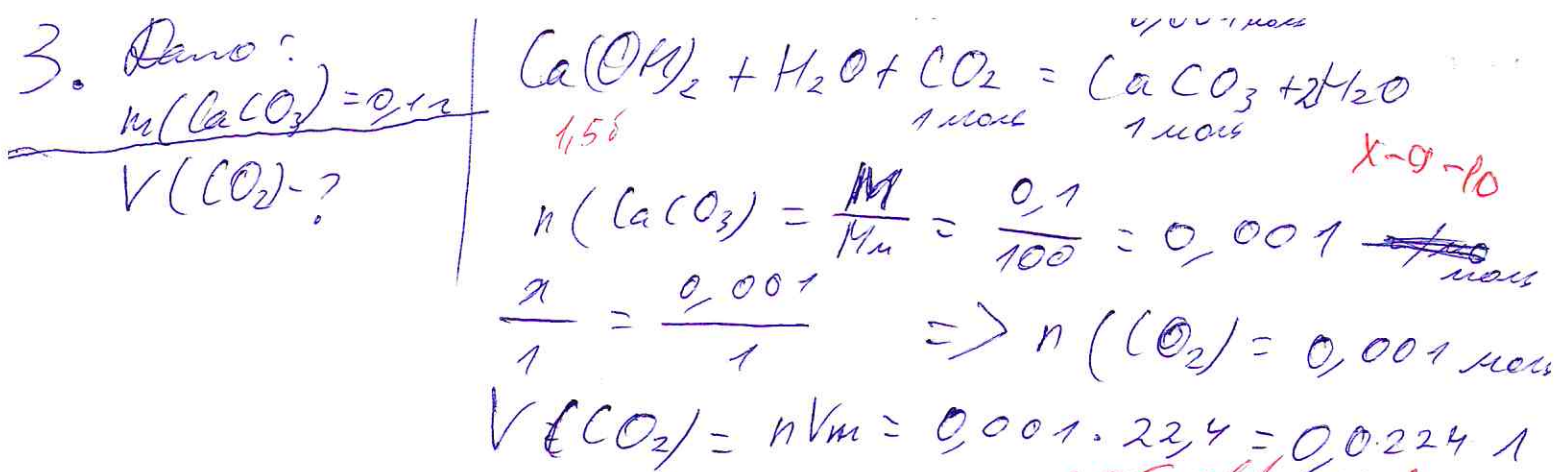 3. Дано:
m(CaCO3) = 0,1 г
V(CO2) - ?
Ca(OH)2 + H2O + CO2 = CaCO3 + 2H2O
1,5б
1 моль 1 моль
х-9-10
n(CaCO3) = M/Mм = 0,1/100 = 0,001 моль
x/1 = 0,001/1 => n(CO2) = 0,001 моль
V(CO2) = nVm = 0,001 · 22,4 = 0,0224 л